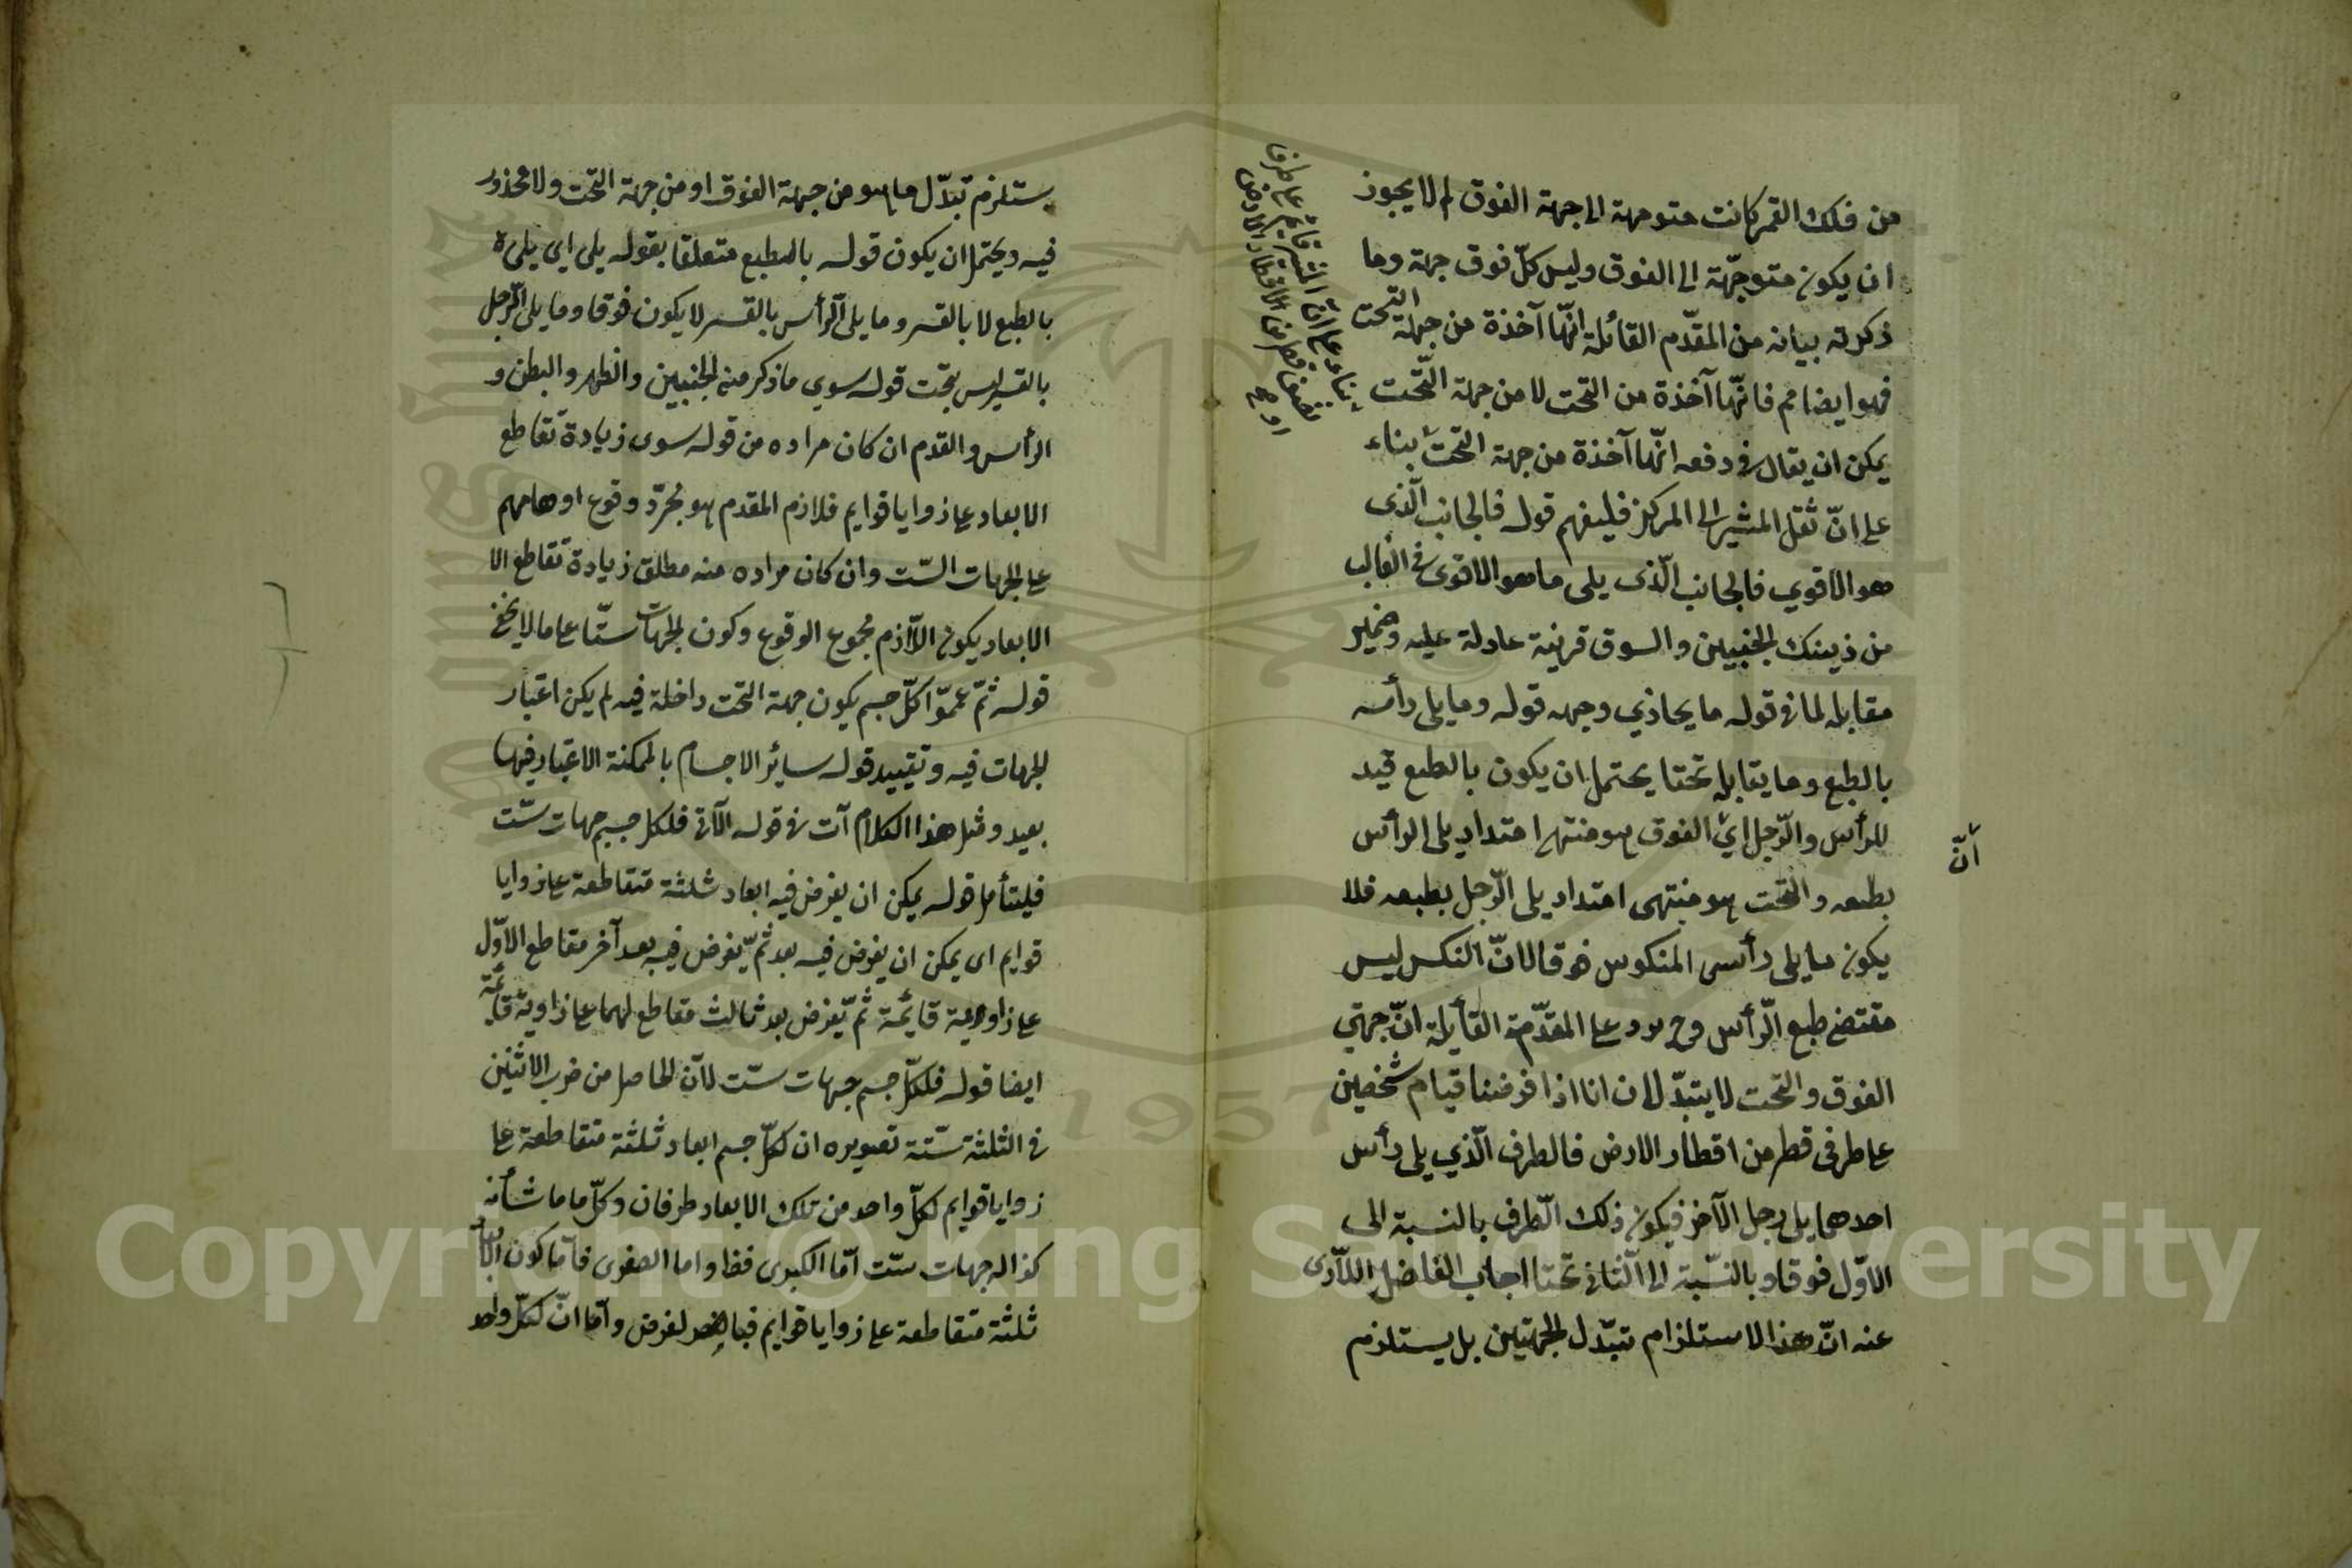 من فلك القمر كانت متوجهة الى جهة الفوق لم لا يجوز
ان يكون متوجّهة الى الفوق وليس كلّ فوق جهة وما
ذكرته بيانه من المقدّم القائلة انّها آخذة من جهة التحت
فهو ايضا مم فانّها آخذة من التحت لا من جهة التّحت
يمكن ان يقال في دفعه انّها آخذة من جهة التحت بناء
على انّ ثقل المشير الى المركز فليفهم قوله فالجانب الّذى
هو الاقوي فالجانب الّذى يلى ما هو الاقوى في الغالب
من ذينك الجنبين والسوق قرينة عادلة عليه وضمير
مقابله لما في قوله ما يحاذي وجهه قوله وما يلى رأسه
بالطبع وما يقابله تحتا يحتمل ان يكون بالطبع قيد
للرأس والرّجل اى الفوق هو منتهى امتداد يلى الرأس
بطبعه والتحت هو منتهى امتداد يلى الرّجل بطبعه فلا
يكون ما يلى رأس المنكوس فوقا لانّ النكس ليس
مقتضى طبع الرّأس وح يرد على المقدّمة القائلة انّ جهتي
الفوق والتحت لا يتبدّلان انا اذا فرضنا قيام شخصين
على طرفى قطر من اقطار الارض فالطرف الّذي يلى رأس
احدهما يلى رجل الآخر فيكون ذلك الطّرف بالنسبة الى
الاوّل فوقا وبالنّسبة الى الثّانى تحتا اجاب الفاضل اللّارى
عنه انّ هذا لا استلزام تبدّل الجهتين بل يستلزم
انّ
بناء على انّ
يستلزم تبدّل ما هو من جهة الفوق او من جهة التحت ولا محذور
فيه ويحتمل ان يكون قوله بالطبع متعلقا بقوله يلى اى يليه
بالطبع لا بالقسر وما يلى الرّأس بالقسر لا يكون فوقا وما يلى الرّجل
بالقسر ليس بتحت قوله سوى ما ذكر منه الجنبين والظهر والبطن و
الرأس والقدم ان كان مراده من قوله سوى زيادة تقاطع
الابعاد على زوايا قوايم فلازم المقدم هو مجرّد وقوع اوهامهم
على الجهات السّت وان كان مراده منه مطلق زيادة تقاطع الا
الابعاد يكون اللّازم مجموع الوقوع وكون الجهات ستّا على ما لا يخفى
قوله ثمّ عمّوا كلّ جسم يكون جهة التحت داخلة فيه لم يكن اعتبار
الجهات فيه وتقييد قوله سائر الاجسام بالممكنة الاعتبار فيها
بعيد ومثل هذا الكلام آت في قوله الآتى فلكل جسم جهات ستّ
فليتأمل قوله يمكن ان يفرض فيه ابعاد ثلثة متقاطعة على زوايا
قوايم اى يمكن ان يفرض فيه بعد ثمّ يفرض فيه بعد آخر مقاطع الاوّل
على زاوية قائمة ثمّ يفرض بعد ثالث مقاطع لهما على زاوية قائمة
ايضا قوله فلكلّ جسم جهات ستّ لانّ الحاصل من ضرب الاثنين
في الثلثة ستّة تصويره ان لكلّ جسم ابعاد ثلثة متقاطعة على
زوايا قوايم لكلّ واحد من تلك الابعاد طرفان وكلّ ما ما شأنه
كذا له جهات ستّ امّا الكبرى فظ واما الصغرى فامّا كون الابعاد
ثلثة متقاطعة على زوايا قوايم لفرض وامّا انّ لكلّ واحد